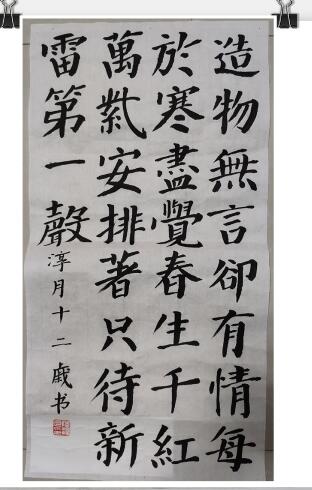 造物無言卻有情每
於寒盡覺春生千紅
萬紫安排著只待新
雷第一聲
淳月十二歲书